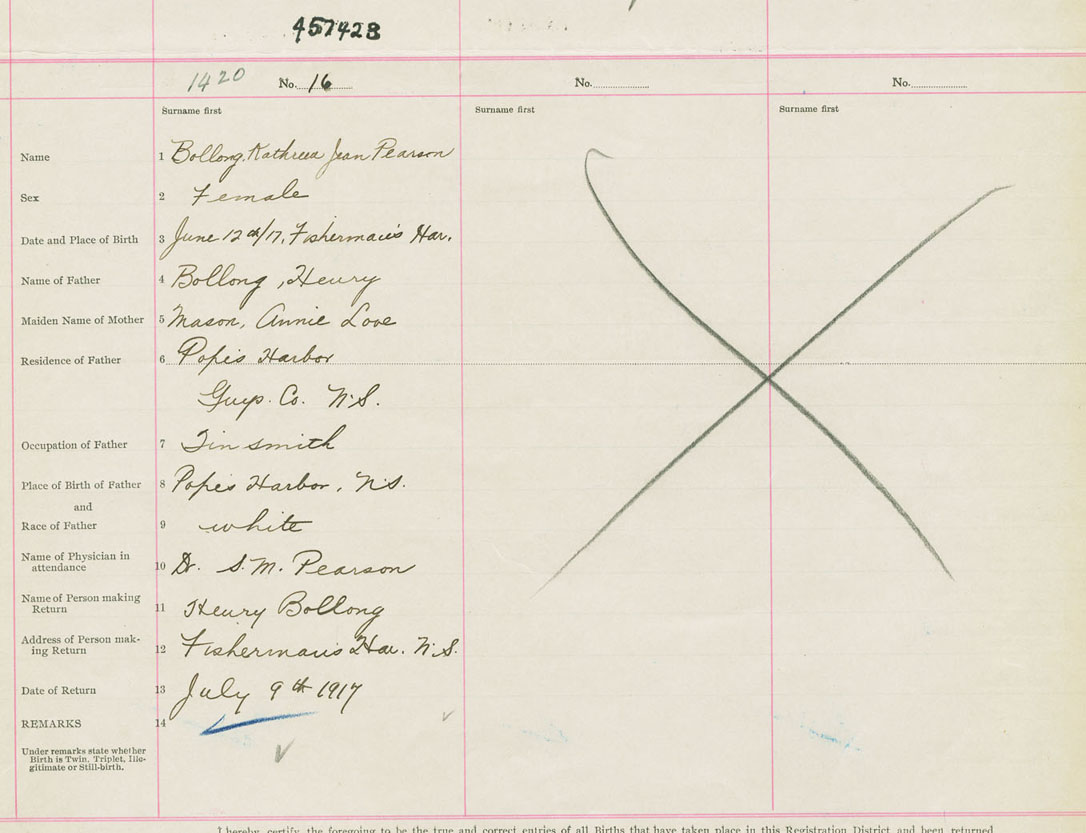 457423
1420 No. 16 No. No.
Surname first Surname first Surname first
Name 1 Bollong, Kathleen Jean Pearson
Sex 2 Female
Date and Place of Birth 3 June 12th/17, Fisherman's Har.
Name of Father 4 Bollong, Henry
Maiden Name of Mother 5 Mason, Annie Love
Residence of Father 6 Pope's Harbor
Guys. Co. N.S.
Occupation of Father 7 Tinsmith
Place of Birth of Father 8 Pope's Harbor, N.S.
and
Race of Father 9 white
Name of Physician in
attendance 10 Dr. S. M. Pearson
Name of Person making
Return 11 Henry Bollong
Address of Person mak-
ing Return 12 Fisherman's Har. N.S.
Date of Return 13 July 9th 1917
REMARKS 14
Under remarks state whether
Birth is Twin, Triplet, Ille-
gitimate or Still-birth.
I hereby certify the foregoing to be the true and correct entries of all Births that have taken place in this Registration District, and been returned